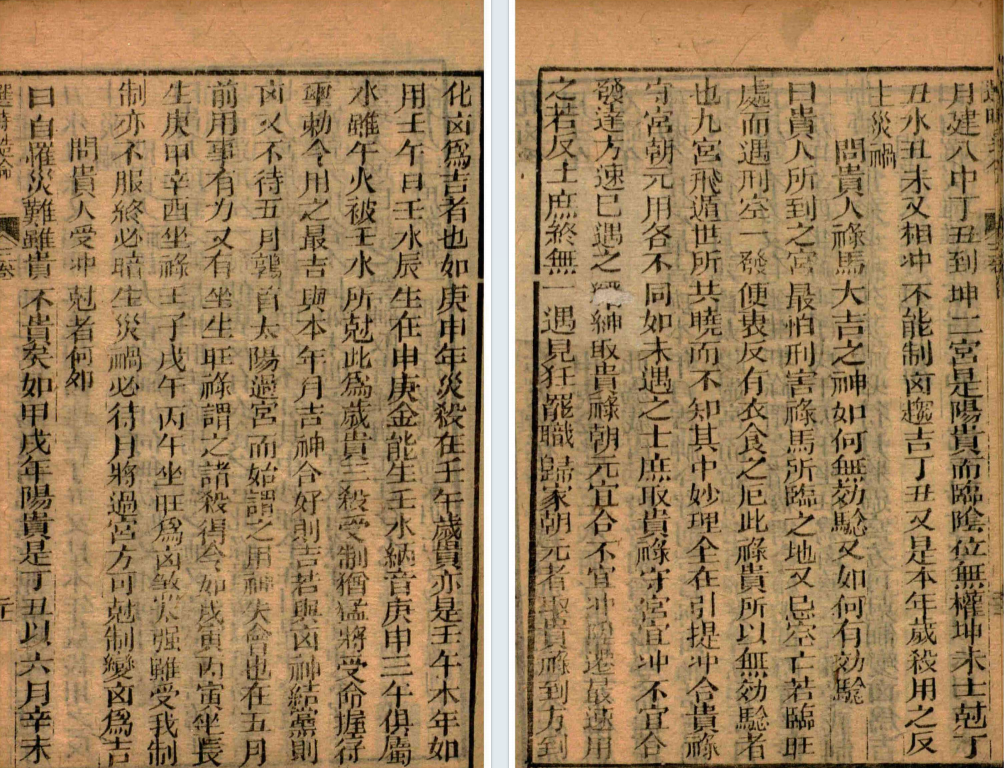 化凶爲吉者也如庚申年災殺在壬午歲貴亦是壬午木年如
用壬午日壬水辰生在申庚金能生壬水納音庚申三午俱屬
水雖午火被壬水所尅此爲歲貴三殺受制猶猛將受命握符
璽勅令用之最吉與本年月吉神合好則吉若與凶神結黨則
凶又不待五月鶉首太陽過宮而始謂之用神失會也在五月
前用事有力又有坐生旺祿謂之諸殺得令如戌寅丙寅坐長
生庚申辛酉坐祿壬子戊午丙午坐旺爲凶煞太强雖受我制
制亦不服終必暗生災禍必待月將過宮方可尅制變凶爲吉
問貴人受冲尅者何如
曰自罹災難雖貴不貴矣如甲戌年陽貴是丁丑以六月辛未
月建入中丁丑到坤二宮是陽貴而臨陰位無權坤未土尅丁
丑水丑未又相冲不能制凶趨吉丁丑又是本年歲殺用之反
主災禍
問貴人祿馬大吉之神如何無効驗又如何有効驗
曰貴人所到之宮最怕刑害祿馬所臨之地又忌空亡若臨旺
處而遇刑空一發便衰反有衣食之厄此祿貴所以無効驗者
也九宮飛遁世所共曉而不知其中妙理全在引提冲合貴祿
守宮朝元用各不同如未遇之士庶取貴祿守宮宜冲不宜合
發達方速已遇之縉紳取貴祿朝元宜合不宜冲陞遷最速用
之若反士庶終無一遇見任罷職歸家朝元者取貴祿到方到